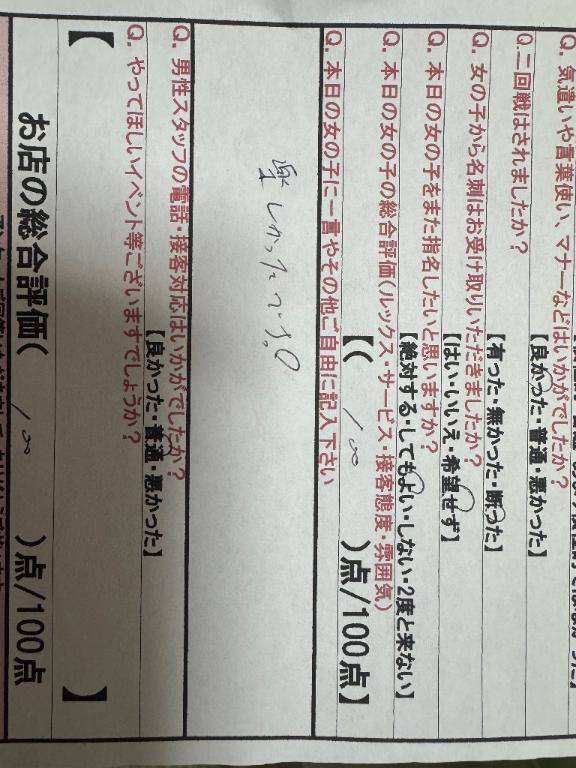 Q. 気遣いや言葉使い、マナーなどはいかがでしたか？
【良かった・普通・悪かった】
Q. 二回戦はされましたか？
【有った・無かった・断った】
Q. 女の子から名刺はお受け取りいただきましたか？
【はい・いいえ・希望せず】
Q. 本日の女の子をまた指名したいと思いますか？
【絶対する・してもよい・しない・2度と来ない】
Q. 本日の女の子の総合評価(ルックス・サービス・接客態度・雰囲気)
【( 100 )点/100点】
Q. 本日の女の子に一言やその他ご自由に記入下さい
楽しかったです。
Q. 男性スタッフの電話・接客対応はいかがでしたか？
【良かった・普通・悪かった】
Q. やってほしいイベント等ございますでしょうか？
【 】
お店の総合評価( 100 )点/100点